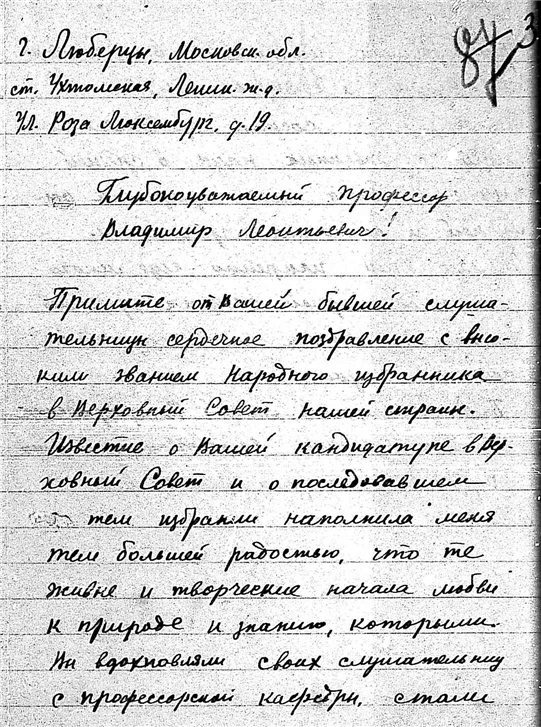 г. Люберцы, Московск. обл.
ст. Ухтомская, Ленин. ж.д.
Ул. Роза Люксембург, д. 19.
Глубокоуважаемый профессор
Владимир Леонтьевич!
Примите от Вашей бывшей слуша-
тельницы сердечное поздравление с высо-
ким званием Народного избранника
в Верховный Совет нашей страны.
Известие о Вашей кандидатуре в Вер-
ховный Совет и о последовавшем
тем избрании наполнила меня
тем большей радостью, что те
живые и творческие начала любви
к природе и знанию, которыми
Вы вдохновляли своих слушательниц
с профессорской кафедры, стали